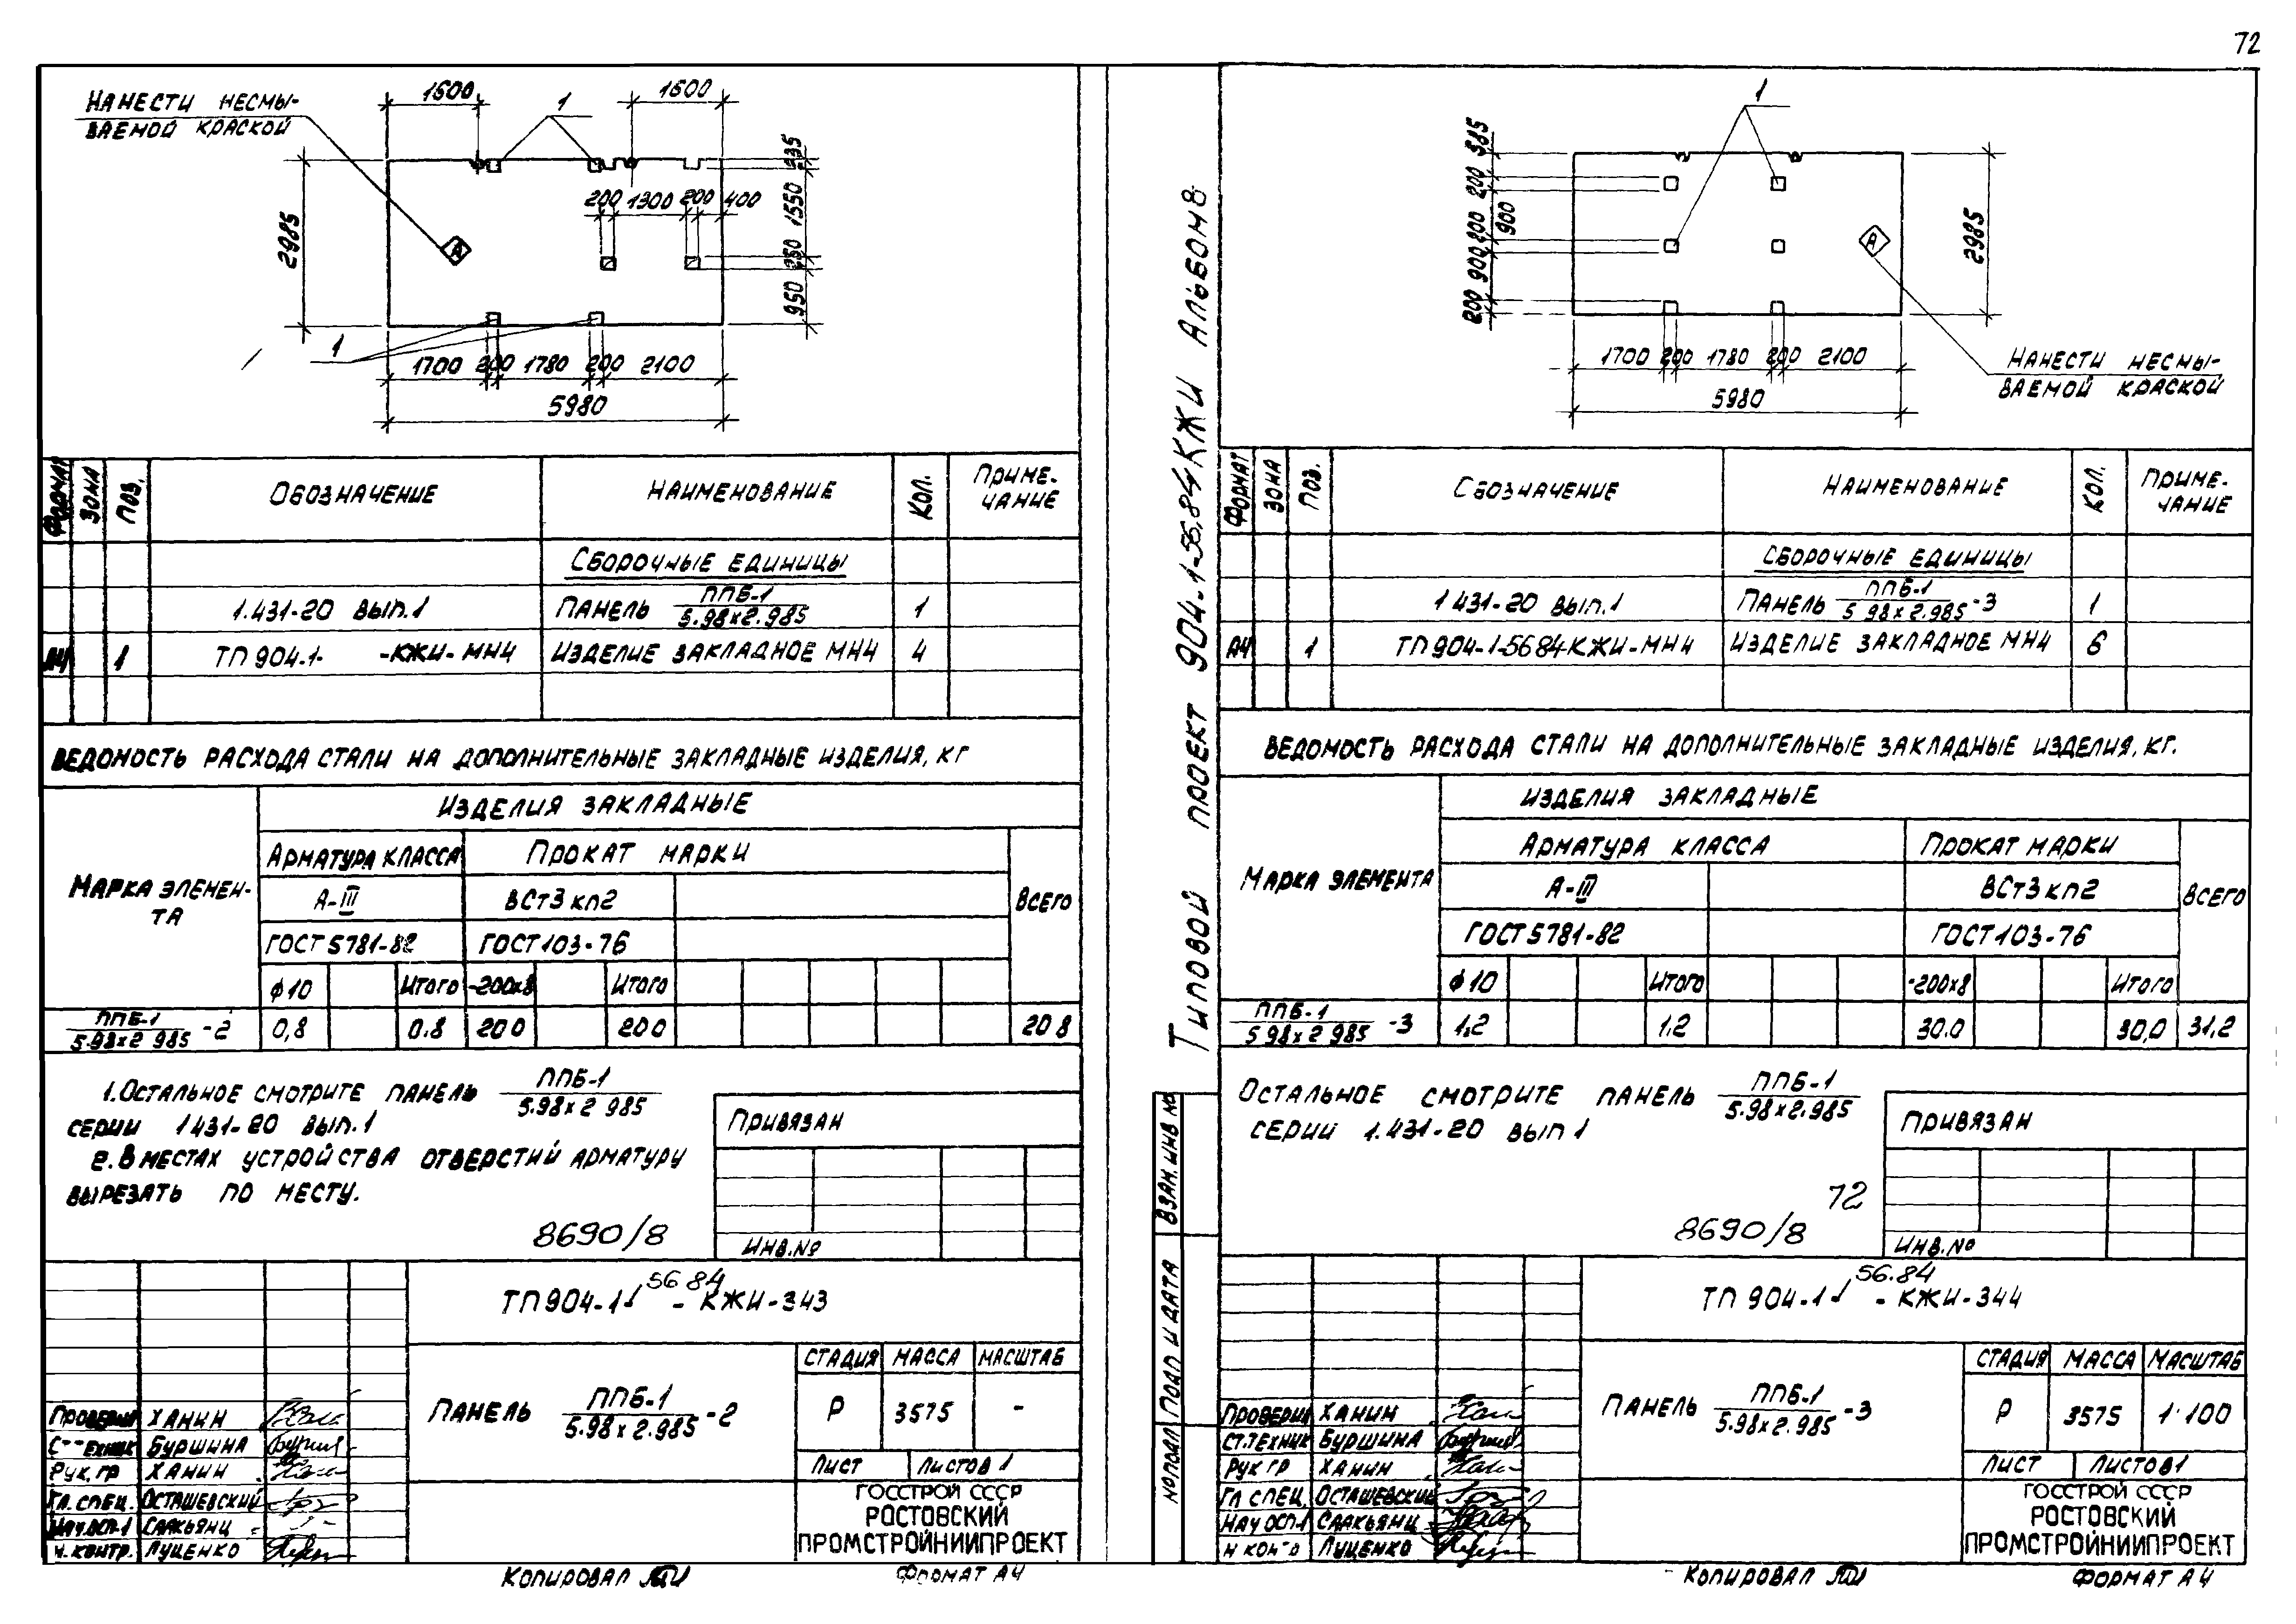 72
НАНЕСТИ НЕСМЫ-
ВАЕМОЙ КРАСКОЙ
1600
1
1600
235
1550
250
950
200 1300 200 400
2985
А
1
1700 200 1780 200 2100
5980
ФОРМАТ ЗОНА ПОЗ. ОБОЗНАЧЕНИЕ НАИМЕНОВАНИЕ КОЛ. ПРИМЕ-
ЧАНИЕ
СБОРОЧНЫЕ ЕДИНИЦЫ
1.431-20 ВЫП.1 ПАНЕЛЬ ППБ-1 1
5.98х2.985
А4 1 ТП 904.1- -КЖИ-МН4 ИЗДЕЛИЕ ЗАКЛАДНОЕ МН4 4
ВЕДОМОСТЬ РАСХОДА СТАЛИ НА ДОПОЛНИТЕЛЬНЫЕ ЗАКЛАДНЫЕ ИЗДЕЛИЯ, КГ
МАРКА ЭЛЕМЕН-
ТА
ИЗДЕЛИЯ ЗАКЛАДНЫЕ
АРМАТУРА КЛАССА ПРОКАТ МАРКИ
А-III ВСт3кп2 ВСЕГО
ГОСТ 5781-82 ГОСТ 103-76
ф10 ИТОГО -200х8 ИТОГО
ППБ-1
5.98х2 985 -2 0,8 0.8 20 0 20 0 20 8
1. ОСТАЛЬНОЕ СМОТРИТЕ ПАНЕЛЬ ППБ-1
5.98х2 985
СЕРИИ 1 431-20 ВЫП.1
2. В МЕСТАХ УСТРОЙСТВА ОТВЕРСТИЙ АРМАТУРУ
ВЫРЕЗАТЬ ПО МЕСТУ.
8690/8
ПРИВЯЗАН
ИНВ.№
56.84
ТП 904-1- - КЖИ-343
ПАНЕЛЬ ППБ-1
5.98х2.985 -2
СТАДИЯ МАССА МАСШТАБ
Р 3575 -
ЛИСТ ЛИСТОВ 1
ГОССТРОЙ СССР
РОСТОВСКИЙ
ПРОМСТРОЙНИИПРОЕКТ
ПРОВЕРИЛ ХАНИН
БУРШИНА
РУК. ГР ХАНИН
ГЛ. СПЕЦ. ОСТАШЕВСКИЙ
НАЧ.ОСП-1 СААКЬЯНЦ
Н. КОНТР. ЛУЦЕНКО
КОПИРОВАЛ
ФОРМАТ А4
ТИПОВОЙ ПРОЕКТ 904-1-56.84 КЖИ АЛЬБОМ 8
ВЗАМ. ИНВ №
ПОДП И ДАТА
№ ПОДЛ
1
585
200
900
200
900
200
2985
А
НАНЕСТИ НЕСМЫ-
ВАЕМОЙ КРАСКОЙ
1700 200 1780 200 2100
5980
ФОРМАТ ЗОНА ПОЗ. ОБОЗНАЧЕНИЕ НАИМЕНОВАНИЕ КОЛ. ПРИМЕ-
ЧАНИЕ
СБОРОЧНЫЕ ЕДИНИЦЫ
1 431-20 ВЫП.1 ПАНЕЛЬ ППБ-1 1
5 98х2.985 -3
А4 1 ТП 904-1-56 84-КЖИ-МН4 ИЗДЕЛИЕ ЗАКЛАДНОЕ МН4 6
ВЕДОМОСТЬ РАСХОДА СТАЛИ НА ДОПОЛНИТЕЛЬНЫЕ ЗАКЛАДНЫЕ ИЗДЕЛИЯ, КГ.
МАРКА ЭЛЕМЕНТА
ИЗДЕЛИЯ ЗАКЛАДНЫЕ
АРМАТУРА КЛАССА ПРОКАТ МАРКИ
А-III ВСт3кп2 ВСЕГО
ГОСТ 5781-82 ГОСТ 103-76
ф10 ИТОГО -200х8 ИТОГО
ППБ-1
5 98х2 985 -3 1,2 1,2 30.0 30,0 31,2
ОСТАЛЬНОЕ СМОТРИТЕ ПАНЕЛЬ ППБ-1
5.98х2.985
СЕРИИ 1.431-20 ВЫП 1
72
8690/8
ПРИВЯЗАН
ИНВ.№
56.84
ТП 904-1- - КЖИ-344
ПАНЕЛЬ ППБ-1
5.98х2.985 -3
СТАДИЯ МАССА МАСШТАБ
Р 3575 1:100
ЛИСТ ЛИСТОВ 1
ГОССТРОЙ СССР
РОСТОВСКИЙ
ПРОМСТРОЙНИИПРОЕКТ
ПРОВЕРИЛ ХАНИН
СТ.ТЕХНИК БУРШИНА
РУК ГР ХАНИН
ГЛ СПЕЦ. ОСТАШЕВСКИЙ
НАЧ ОСП-1 СААКЬЯНЦ
ЛУЦЕНКО
КОПИРОВАЛ
ФОРМАТ А4